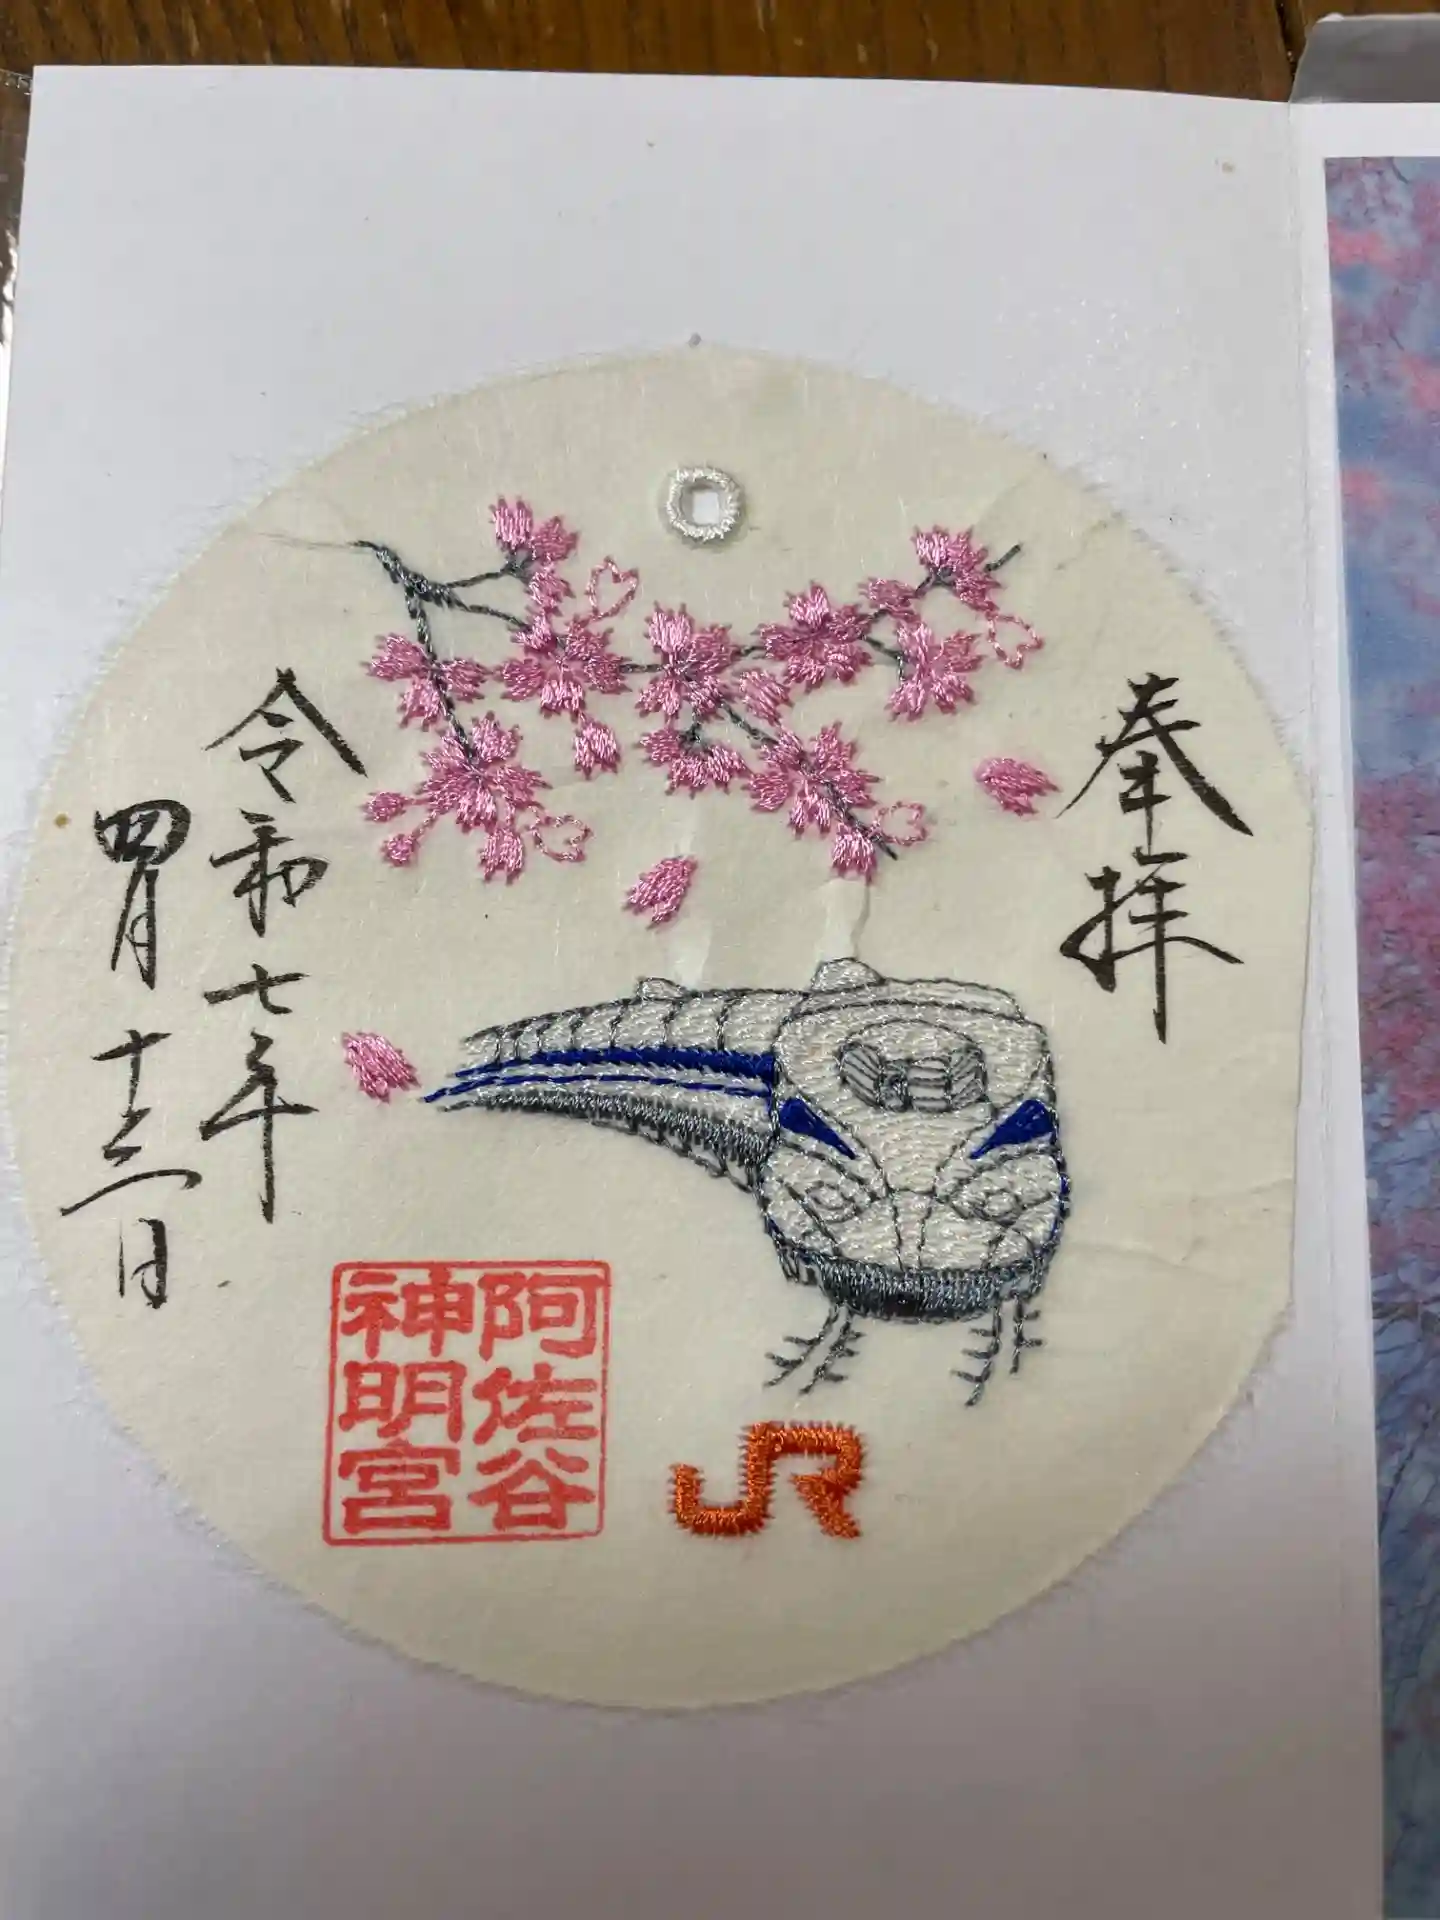 奉拝
令和七年
四月十三日
阿佐谷
神明宮
JR